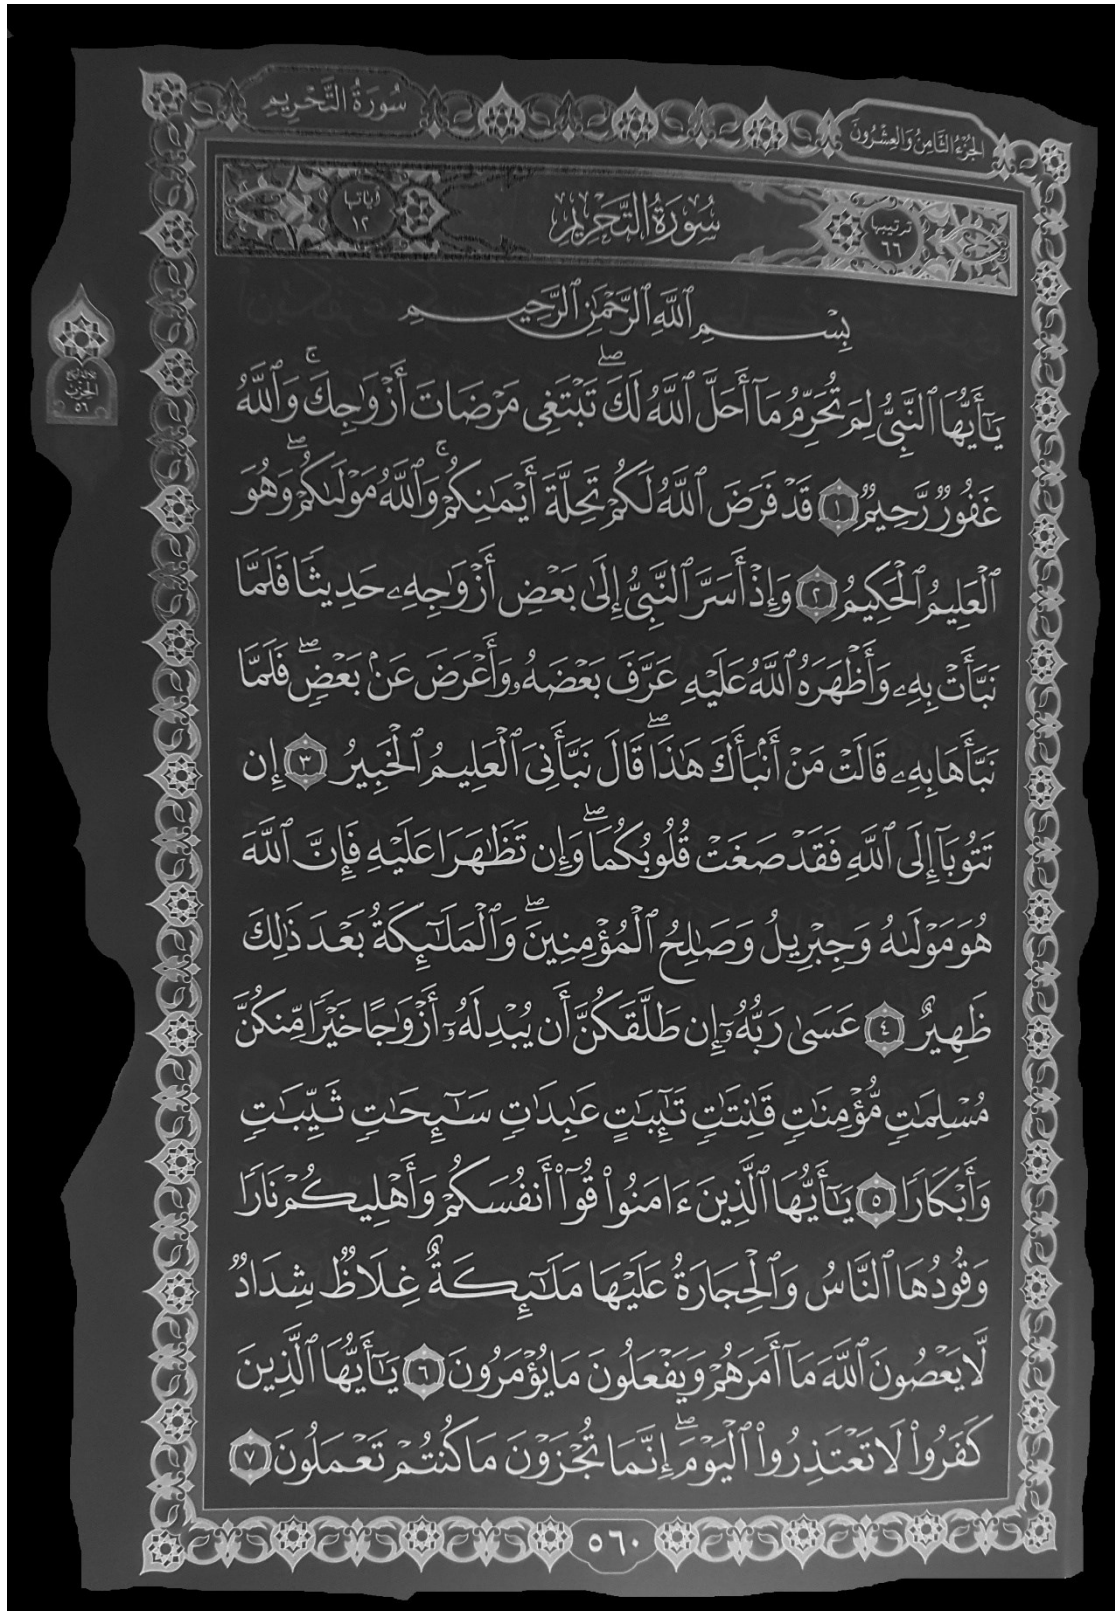 سُورَةُ التَّحْرِيمِ
الجُزْءُ الثَّامِنُ وَالعِشْرُونَ
ترتيبها
٦٦
سُورَةُ التَّحْرِيمِ
آياتها
١٢
بِسْمِ ٱللَّهِ ٱلرَّحْمَٰنِ ٱلرَّحِيمِ
يَٰٓأَيُّهَا ٱلنَّبِىُّ لِمَ تُحَرِّمُ مَآ أَحَلَّ ٱللَّهُ لَكَۖ تَبْتَغِى مَرْضَاتَ أَزْوَٰجِكَۚ وَٱللَّهُ
غَفُورٌ رَّحِيمٌ ١ قَدْ فَرَضَ ٱللَّهُ لَكُمْ تَحِلَّةَ أَيْمَٰنِكُمْۚ وَٱللَّهُ مَوْلَىٰكُمْۖ وَهُوَ
ٱلْعَلِيمُ ٱلْحَكِيمُ ٢ وَإِذْ أَسَرَّ ٱلنَّبِىُّ إِلَىٰ بَعْضِ أَزْوَٰجِهِۦ حَدِيثًا فَلَمَّا
نَبَّأَتْ بِهِۦ وَأَظْهَرَهُ ٱللَّهُ عَلَيْهِ عَرَّفَ بَعْضَهُۥ وَأَعْرَضَ عَنۢ بَعْضٍۖ فَلَمَّا
نَبَّأَهَا بِهِۦ قَالَتْ مَنْ أَنۢبَأَكَ هَٰذَاۖ قَالَ نَبَّأَنِىَ ٱلْعَلِيمُ ٱلْخَبِيرُ ٣ إِن
تَتُوبَآ إِلَى ٱللَّهِ فَقَدْ صَغَتْ قُلُوبُكُمَاۖ وَإِن تَظَٰهَرَا عَلَيْهِ فَإِنَّ ٱللَّهَ
هُوَ مَوْلَىٰهُ وَجِبْرِيلُ وَصَٰلِحُ ٱلْمُؤْمِنِينَۖ وَٱلْمَلَٰٓئِكَةُ بَعْدَ ذَٰلِكَ
ظَهِيرٌ ٤ عَسَىٰ رَبُّهُۥٓ إِن طَلَّقَكُنَّ أَن يُبْدِلَهُۥٓ أَزْوَٰجًا خَيْرًا مِّنكُنَّ
مُسْلِمَٰتٍ مُّؤْمِنَٰتٍ قَٰنِتَٰتٍ تَٰٓئِبَٰتٍ عَٰبِدَٰتٍ سَٰٓئِحَٰتٍ ثَيِّبَٰتٍ
وَأَبْكَارًا ٥ يَٰٓأَيُّهَا ٱلَّذِينَ ءَامَنُوا۟ قُوٓا۟ أَنفُسَكُمْ وَأَهْلِيكُمْ نَارًا
وَقُودُهَا ٱلنَّاسُ وَٱلْحِجَارَةُ عَلَيْهَا مَلَٰٓئِكَةٌ غِلَاظٌ شِدَادٌ
لَّا يَعْصُونَ ٱللَّهَ مَآ أَمَرَهُمْ وَيَفْعَلُونَ مَا يُؤْمَرُونَ ٦ يَٰٓأَيُّهَا ٱلَّذِينَ
كَفَرُوا۟ لَا تَعْتَذِرُوا۟ ٱلْيَوْمَۖ إِنَّمَا تُجْزَوْنَ مَا كُنتُمْ تَعْمَلُونَ ٧
الحزب
٥٦
٥٦٠